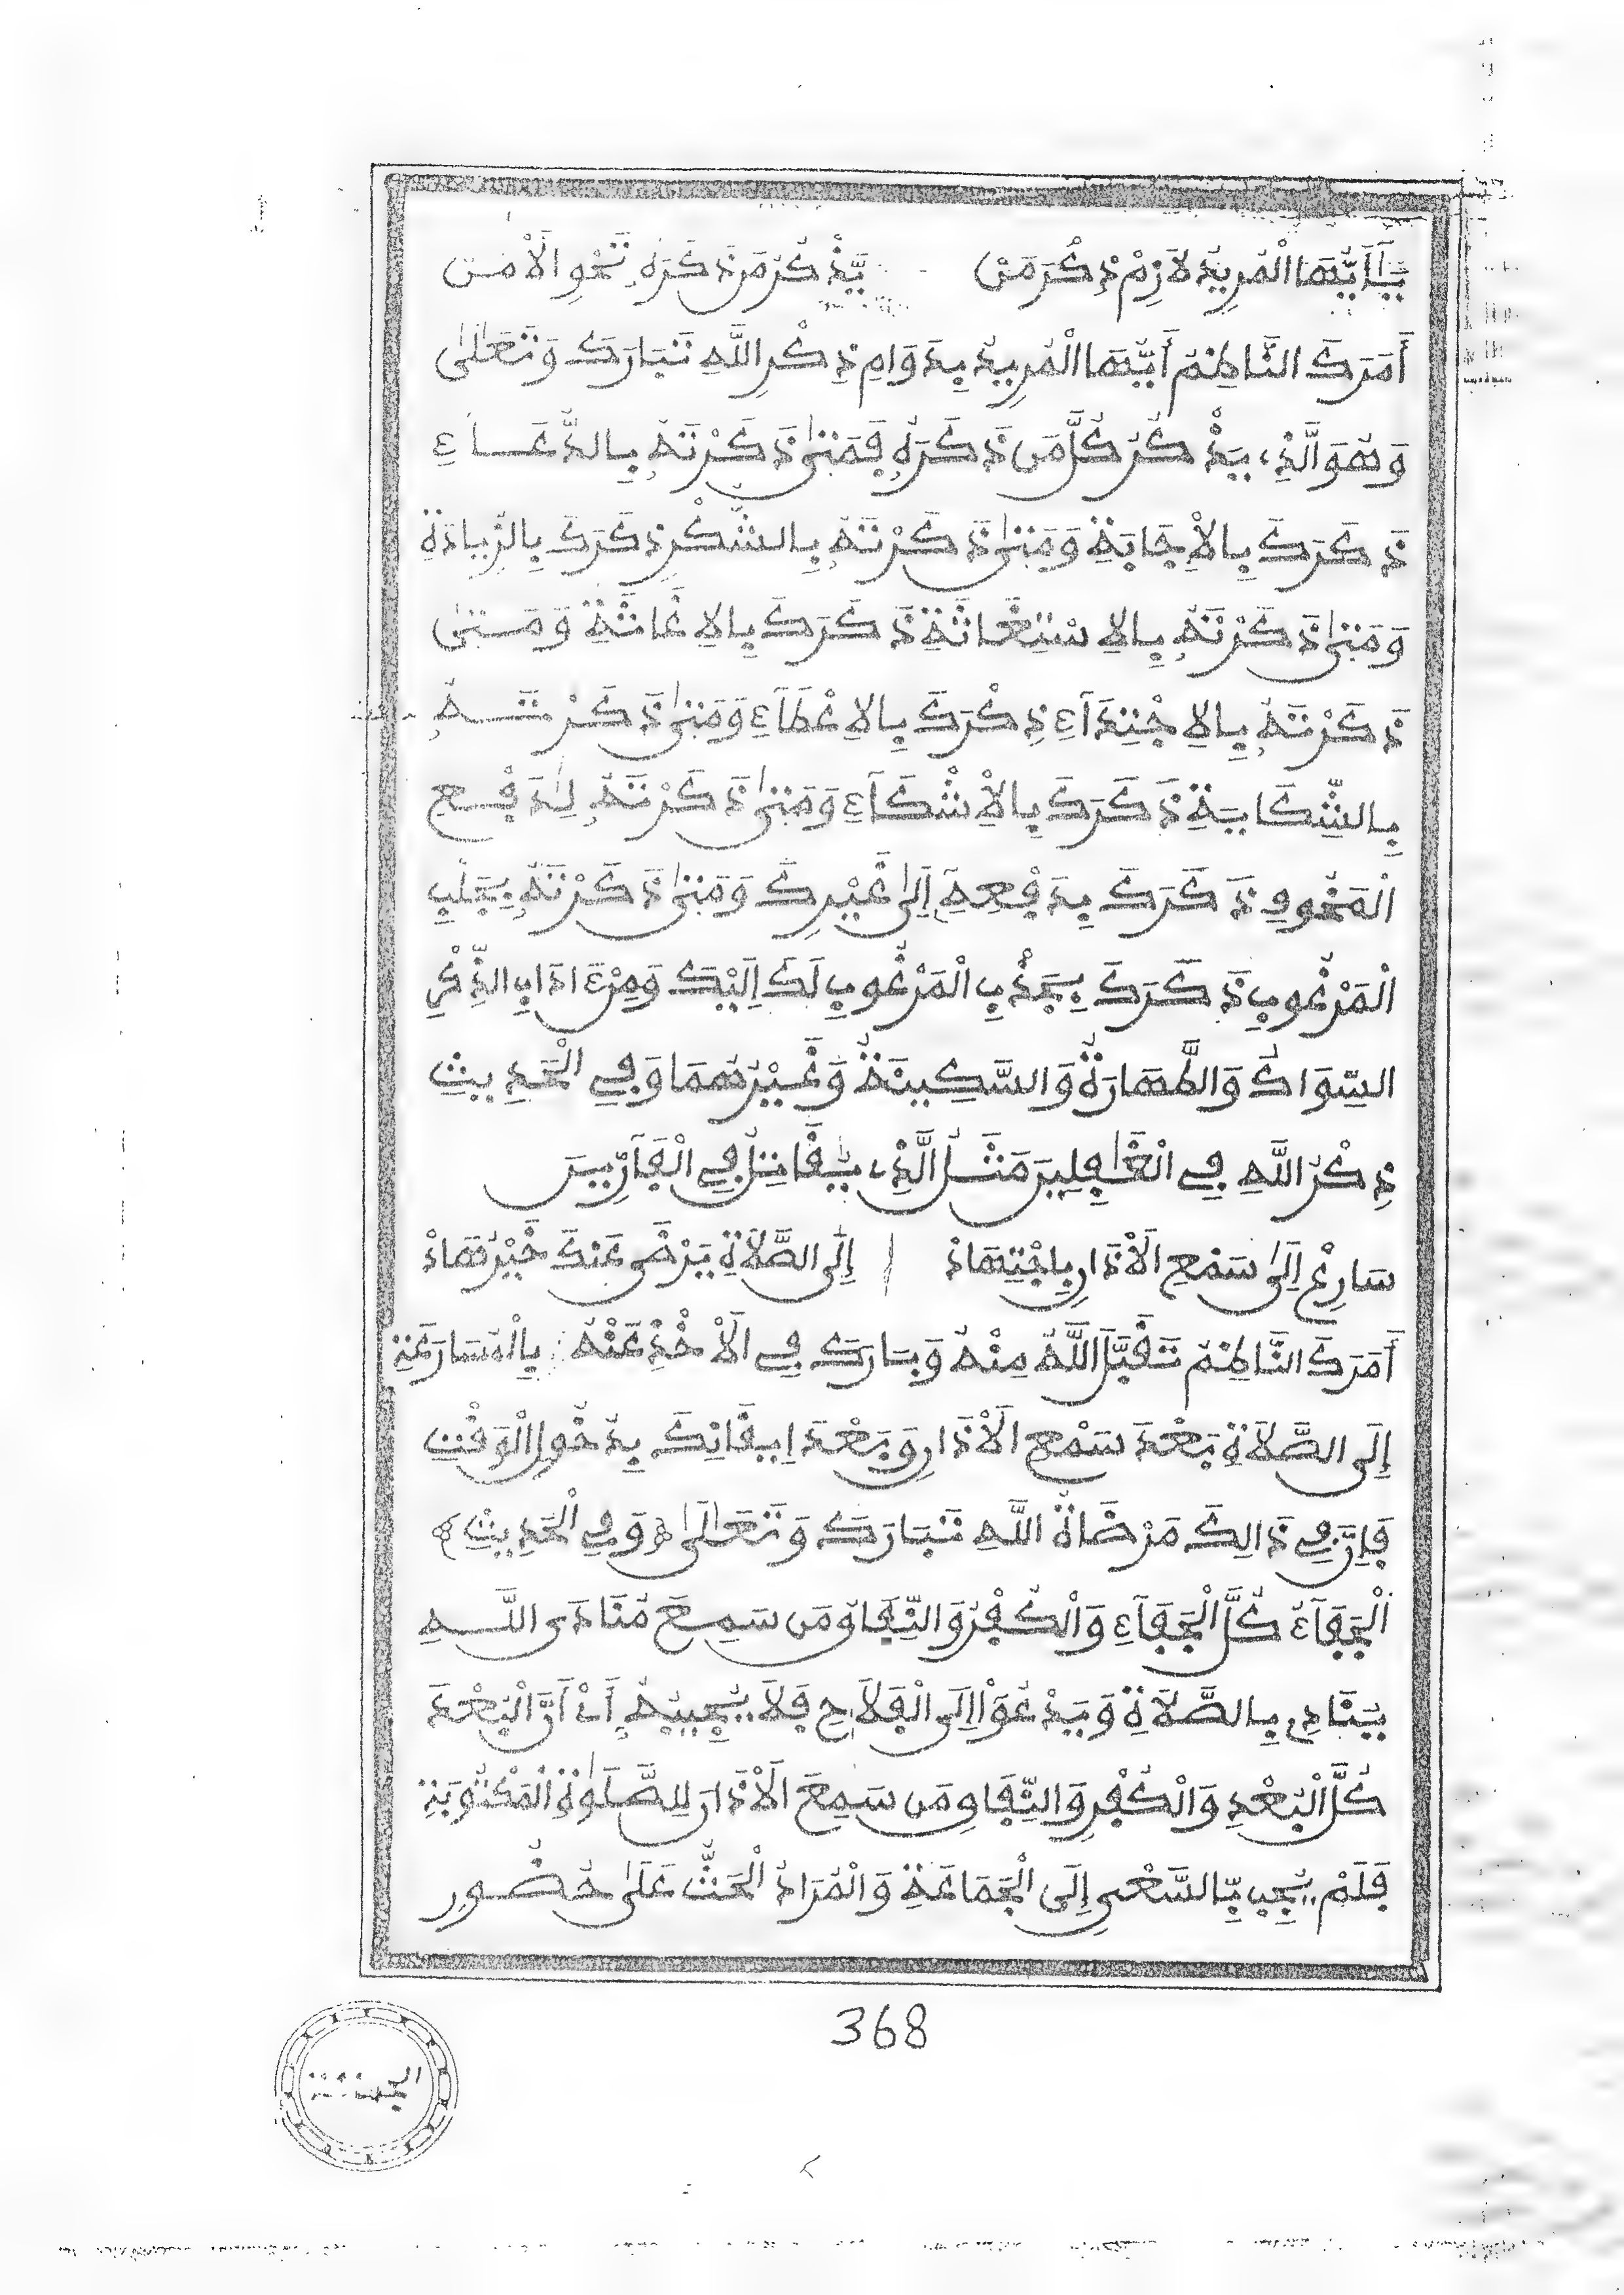 يَآ أَيُّهَا الْمُرِيدُ لاَزِمْ ذِكْرَ مَنْ يَّذْكُرْ مَن ذَكَرَهُ نَحْوِ الاَمَن
أَمَرَكَ النَّاظِمُ أَيُّهَا الْمُرِيدُ بِدَوَامِ ذِكْرِ اللَّهِ تَبَارَكَ وَتَعَالَىٰ
وَهُوَ الَّذِي يَذْكُرُ كُلَّ مَن ذَكَرَهُ فَمَتَىٰ ذَكَرْتَهُ بِالدُّعَاءِ
ذَكَرَكَ بِالاْجَابَةِ وَمَتَىٰ ذَكَرْتَهُ بِالشُّكْرِ ذَكَرَكَ بِالزِّيَادَةِ
وَمَتَىٰ ذَكَرْتَهُ بِالاِسْتِغَاثَةِ ذَكَرَكَ بِالاِغَاثَةِ وَمَتَىٰ
ذَكَرْتَهُ بِالاِجْتِدَآءِ ذَكَرَكَ بِالاِعْطَآءِ وَمَتَىٰ ذَكَرْتَهُ
بِالشِّكَايَةِ ذَكَرَكَ بِالاْشْكَآءِ وَمَتَىٰ ذَكَرْتَهُ لِدَفْعِ
الْمَخُوفِ ذَكَرَكَ بِدَفْعِهِ إِلَىٰ غَيْرِكَ وَمَتَىٰ ذَكَرْتَهُ بِجَلْبِ
الْمَرْغُوبِ ذَكَرَكَ بِجَذْبِ الْمَرْغُوبِ لَكَ إِلَيْكَ وَمِنْ ءَادَابِ الذِّكْرِ
السِّوَاكُ وَالطَّهَارَةُ وَالسَّكِينَةُ وَغَيْرُهُمَا وَفِي الْحَدِيثِ
ذِكْرُ اللَّهِ فِي الْغَافِلِينَ مَثَلُ الَّذِي يُقَاتِلُ فِي الْفَآرِّينَ
سَارِعْ إِلَىٰ سَمْعِ الاَذَانِ بِاجْتِهَادْ إِلَى الصَّلاَةِ يَرْضَى عَنكَ خَيْرُ هَادْ
أَمَرَكَ النَّاظِمُ تَقَبَّلَ اللَّهُ مِنْهُ وَبَارَكَ فِي الاَخْذِ عَنْهُ بِالْمُسَارَعَةِ
إِلَى الصَّلاَةِ بَعْدَ سَمْعِ الاَذَانِ وَبَعْدَ إِيقَانِكَ بِدُخُولِ الْوَقْتِ
فَإِنَّ فِي ذَالِكَ مَرْضَاةَ اللَّهِ تَبَارَكَ وَتَعَالَىٰ ﴿وَفِي الْحَدِيثِ﴾
الْجَفَآءُ كُلُّ الْجَفَآءِ وَالْكُفْرُ وَالنِّفَاقُ مَن سَمِعَ مُنَادِيَ اللَّهِ
يُنَادِي بِالصَّلاَةِ وَيَدْعُوۤا إِلَى الْفَلاَحِ فَلاَ يُجِيبُهُ أَيْ أَنَّ الْبُعْدَ
كُلَّ الْبُعْدِ وَالْكُفْرِ وَالنِّفَاقِ مَن سَمِعَ الاَذَانَ لِلصَّلَوٰةِ الْمَكْتُوبَةِ
فَلَمْ يُجِب بِّالسَّعْيِ إِلَى الْجَمَاعَةِ وَالْمُرَادُ الْحَثُّ عَلَىٰ حُضُورِ
368